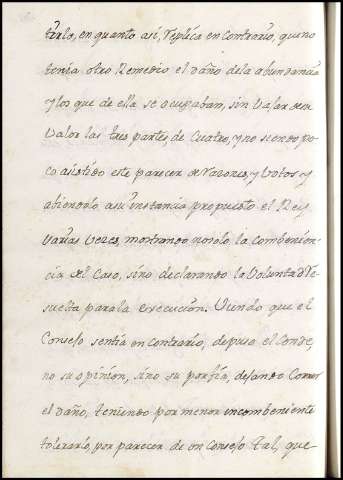 tarlo, en quanto asi, Replica en Contrario, que no
tenia otro Remedio el daño dela abundancia
y los que de ella se ocupaban, sin Valar desu
Valor las tres partes de Cuatro, y no siendo po-
co asistido este parecer de Varones, y Votos y
abiendolo asu instancia propuesto el Rey
Varias Vezes, mostrando nosolo la Combenien-
cia del Caso, sino declarando la Voluntad Re-
suelta para la execucion. Viendo que el
Consejo sentia en contrario, depuso el Conde,
no su opinion, sino su porfia, dejando Correr
el daño, teniendo por menor incombeniente
tolerarlo, por parecer de un Consejo tal, que-